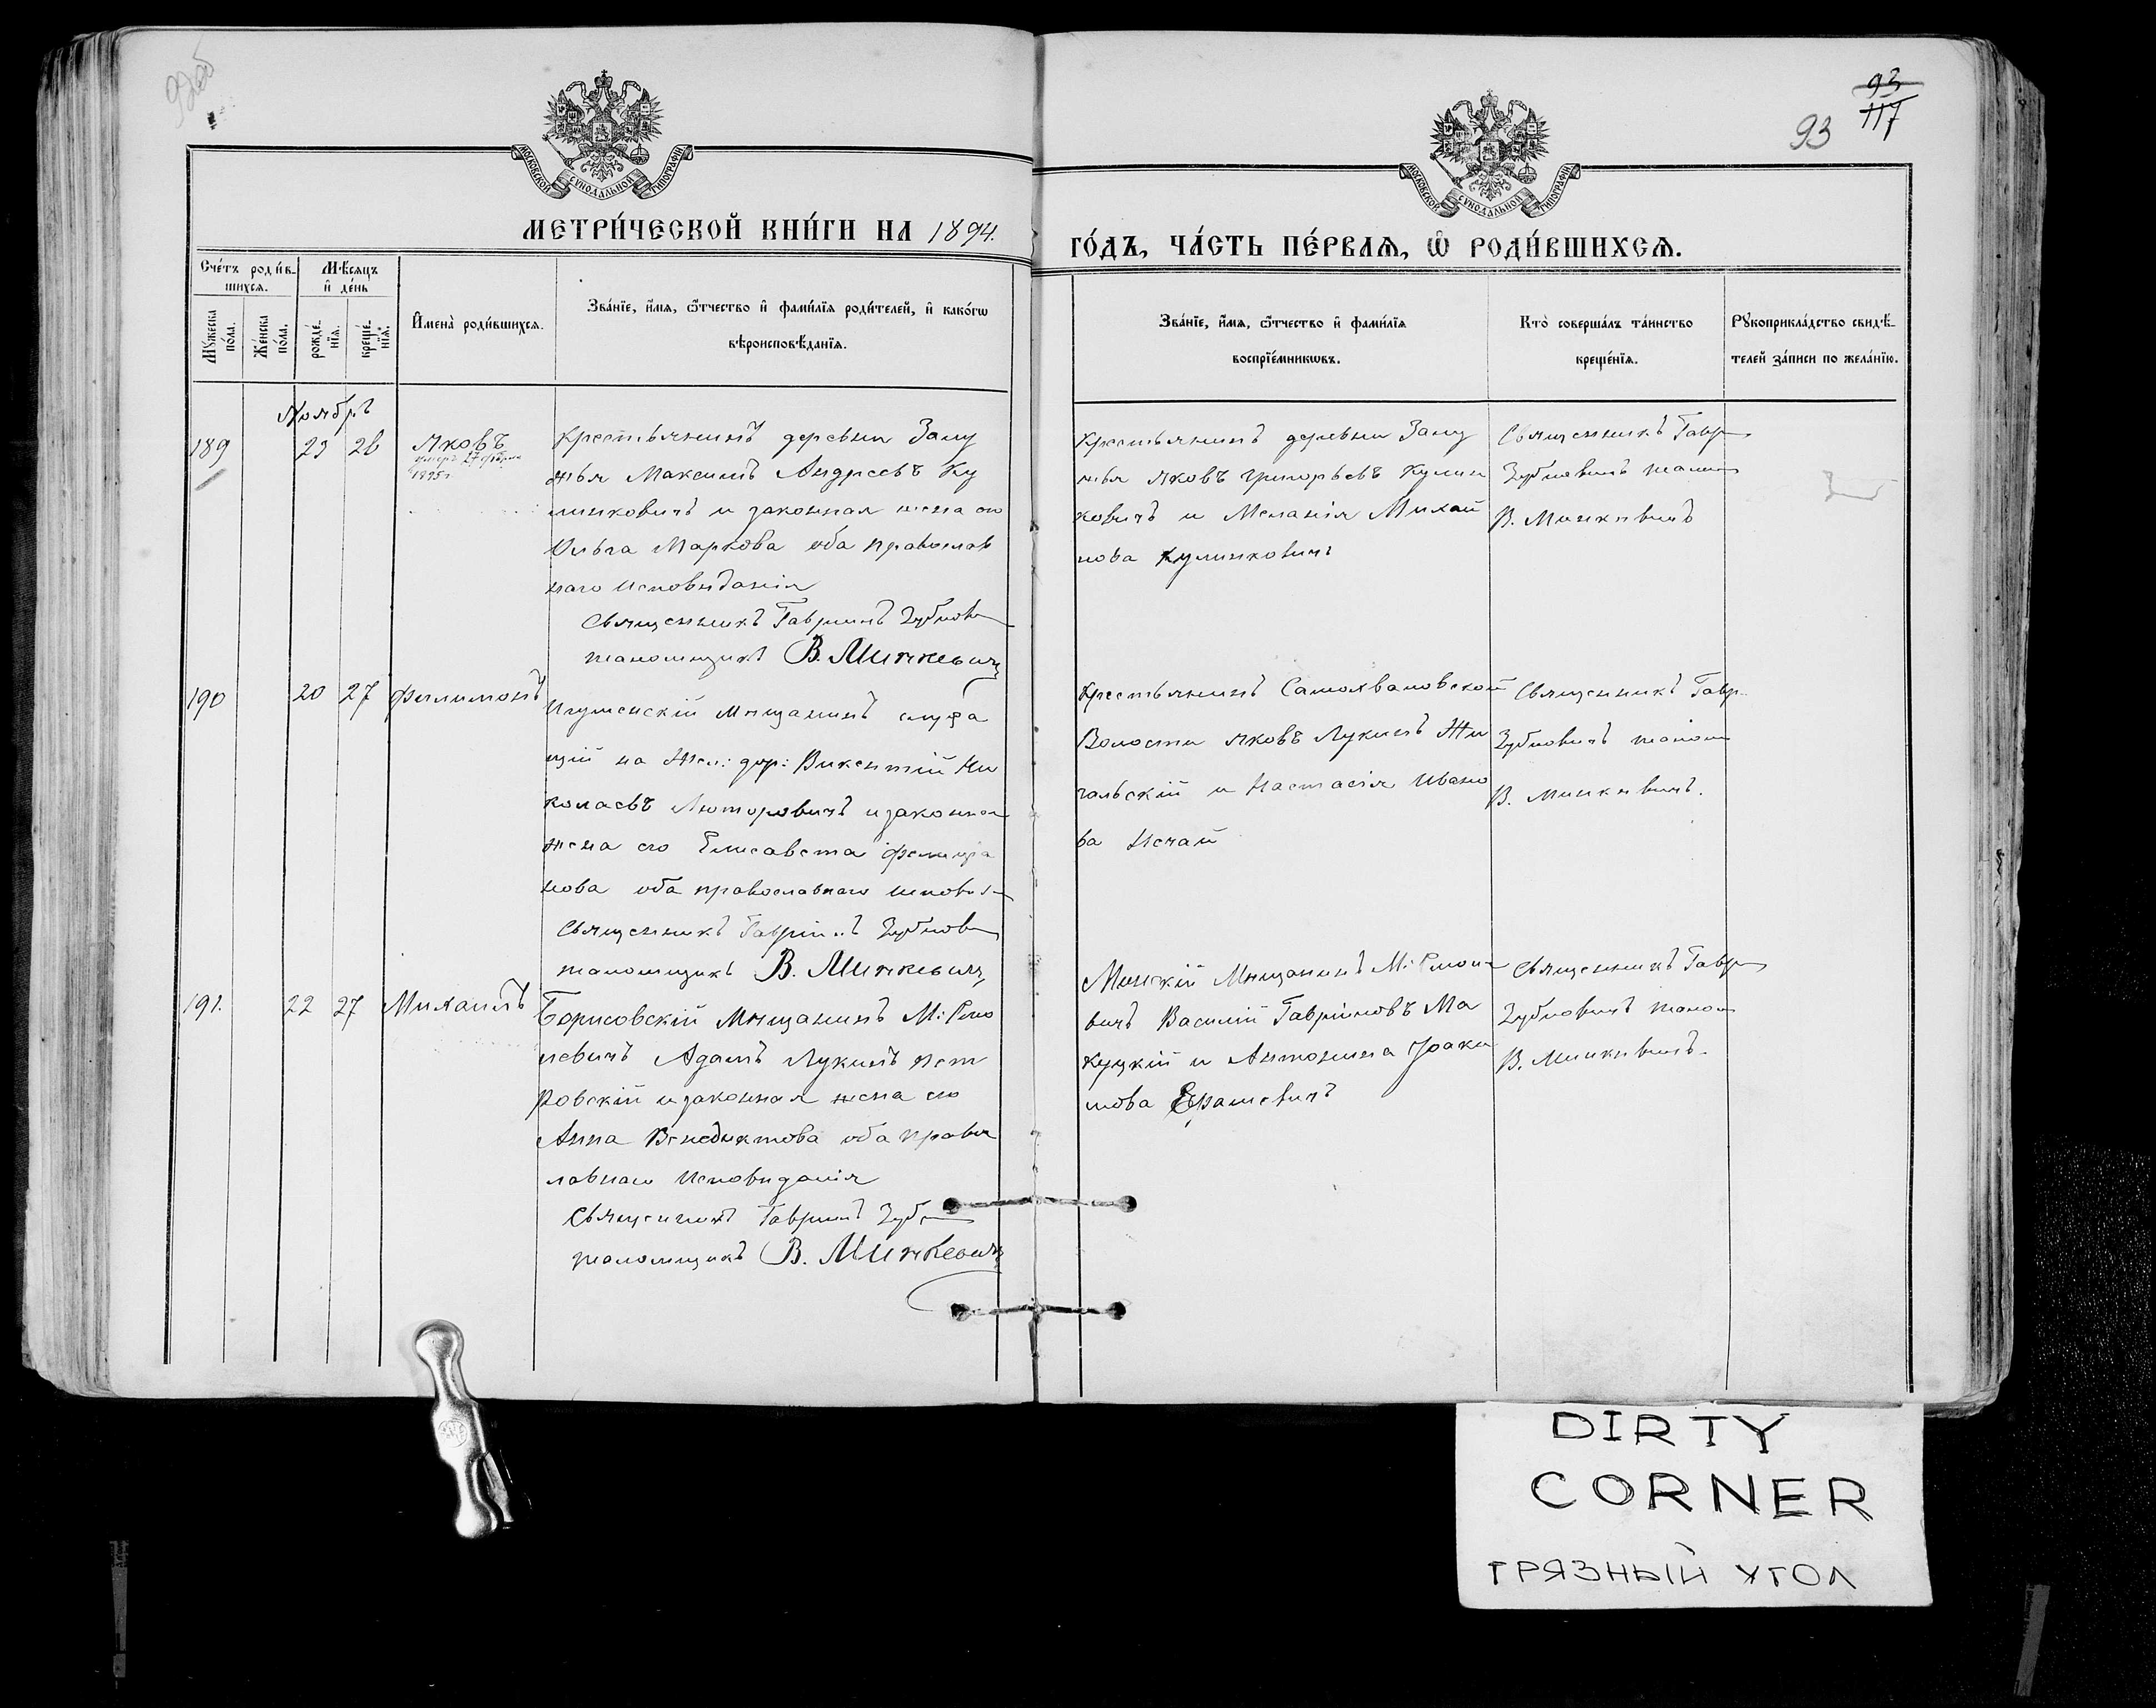 93
93
117
МОСКОВСКОЙ СѴНОДАЛЬНОЙ ТИПОГРАФІИ
МОСКОВСКОЙ СѴНОДАЛЬНОЙ ТИПОГРАФІИ
МЕТРИ́ЧЕСКОЙ КНИ́ГИ НА 1894.
ГО́ДЪ, ЧА́СТЬ ПЕ́РВАѦ, Ѿ РОДИ́ВШИХСѦ.
Сче́тъ роди́в-
шихсѧ.
Мѣ́сѧцъ
и҆ де́нь
Мꙋ́жеска
по́ла.
Же́нска
по́ла.
рожде́-
нїѧ.
креще́-
нїѧ.
И҆мена̀ роди́вшихсѧ.
Зва́нїе, и҆́мѧ, ѻ҆́тчество и҆ фами́лїѧ роди́телей, и҆ како́гѡ
вѣроисповѣ́данїѧ.
Зва́нїе, и҆́мѧ, ѻ҆́тчество и҆ фами́лїѧ
воспрїе́мникѡвъ.
Кто̀ соверша́лъ та́инство
креще́нїѧ.
Рꙋкоприкла́дство свидѣ́-
телей за́писи по жела́нїю.
Ноябрь
189
23 26
Яковъ
умеръ 27 февраля
1895 г
Крестьянинъ деревни Заму
жья Максимъ Андреевъ Ку
линковичъ и законная жена его
Ольга Маркова оба православ
наго исповѣданія
Священникъ Гавріилъ Зубкович
псаломщикъ В. Минкевичъ
Крестьянинъ деревни Заму
жья Яковъ Григорьевъ Кулин
ковичъ и Меланія Михай
лова Кулинковичъ
Священникъ Гавр
псалом
В. Минкевичъ
190
20 27
Филимонъ
Игуменскій мѣщанинъ служа
щій на Жел: дор: Викентій Ни
колаевъ Люторовичъ и законная
жена его Елисавета
нова оба православнаго исповѣд
Священникъ Гавріилъ
псаломщикъ В. Минкевичъ
Крестьянинъ Самохваловской
Волости Яковъ Лукинъ Жи
гальскій и Настасія Ивано
ва Нечай
Священникъ Гавр
псалом
В. Минкевичъ.
191.
22 27
Михаилъ
Борисовскій мѣщанинъ М: Смо
левичъ Адамъ Лукинъ Пет
ровскій и законная жена его
Анна Венедиктова оба право
славнаго исповѣданія
Священникъ Гавріилъ
псаломщикъ В. Минкевичъ
Минскій мѣщанинъ М: Смоле
вичъ Василій Гавріиловъ Ма
куцкій и Антонина Іоаки
мова
Священникъ Гавр
псалом
В. Минкевичъ.
DIRTY
CORNER
ГРЯЗНЫЙ УГОЛ